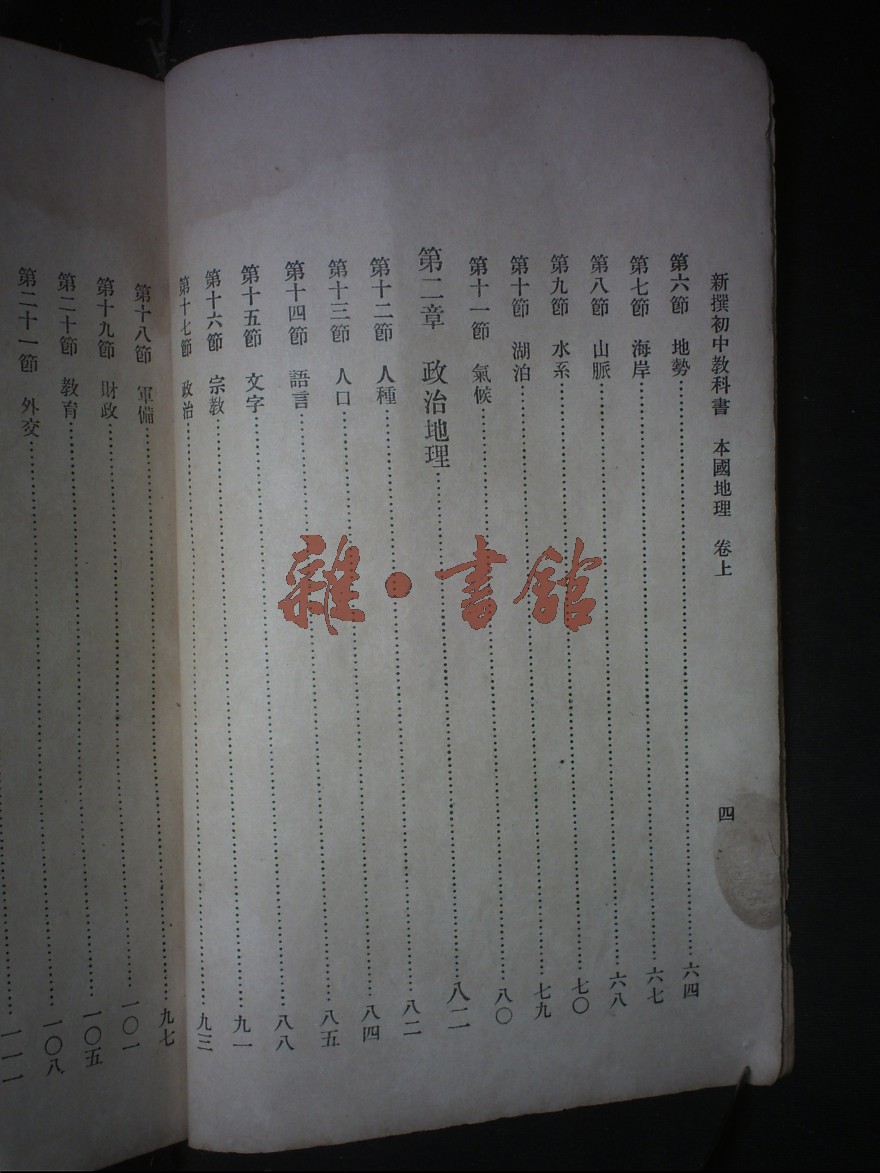 新撰初中教科書　本國地理　卷上　四
第六節　地勢……六四
第七節　海岸……六七
第八節　山脈……六八
第九節　水系……七〇
第十節　湖泊……七九
第十一節　氣候……八〇
第二章　政治地理……八二
第十二節　人種……八二
第十三節　人口……八四
第十四節　語言……八五
第十五節　文字……八八
第十六節　宗教……九一
第十七節　政治……九三
第十八節　軍備……九七
第十九節　財政……一〇一
第二十節　教育……一〇五
第二十一節　外交……一〇八
……一一一
雜·書館